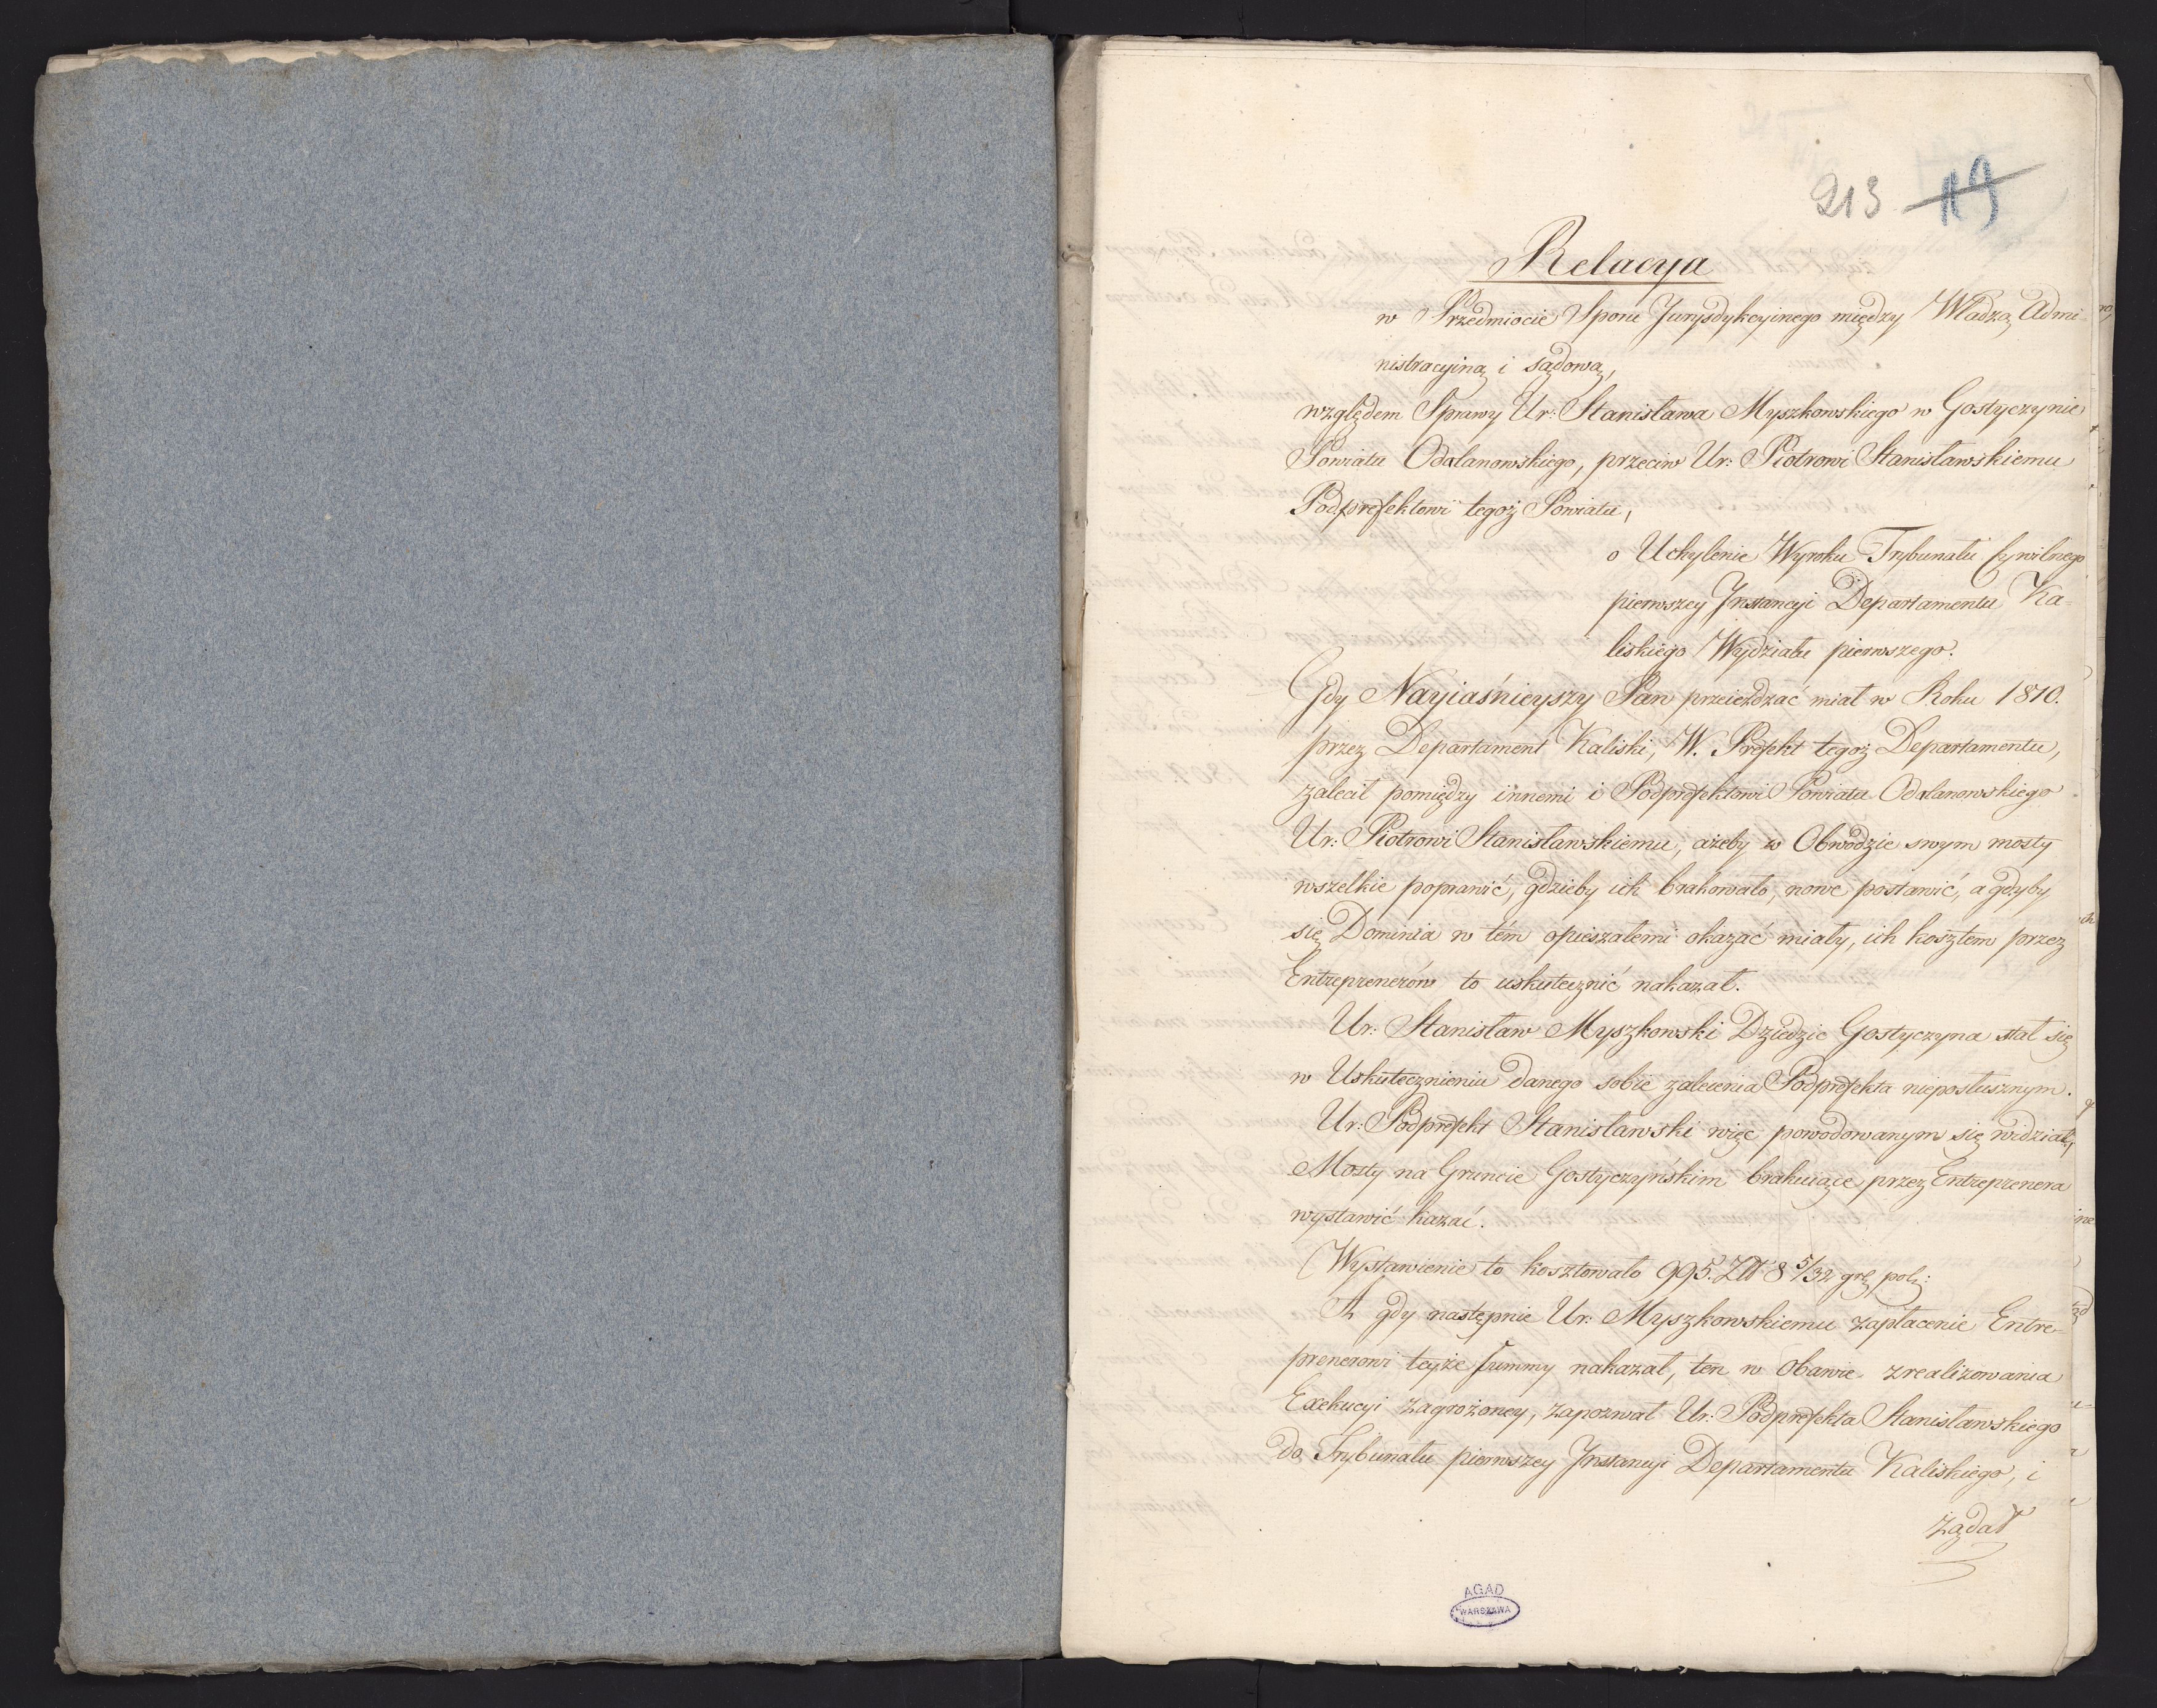 213 119
Relacya
w Przedmiocie Sporu Jurysdykcyinego między Władzą Admi-
nistracyiną i sądową,
względem Sprawy Ur: Stanisława Myszkowskiego w Gostyczynie
Powiatu Odalanowskiego, przeciw Ur: Piotrowi Stanisławskiemu
Podprefektowi tegoż Powiatu,
o Uchylenie Wyroku Trybunału Cywilnego
pierwszey Jnstancyi Departamentu Ka-
liskiego Wydziału pierwszego.
Gdy Nayiaśnieyszy Pan przeieżdzać miał w Roku 1810.
przez Departament Kaliski, W. Prefekt tegoż Departamentu,
zalecił pomiędzy innemi i Podprefektowi Powiatu Odalanowskiego
Ur: Piotrowi Stanisławskiemu, ażeby w Obwodzie swym mosty
wszelkie poprawić, gdzieby ich brakowało, nowe postawić, a gdyby
się Dominia w tém opieszałemi okazać miały, ich kosztem przez
Entreprenerów to uskutecznić nakazał.
Ur: Stanisław Myszkowski Dziedzic Gostyczyna stał się
w Uskutecznieniu danego sobie zalecenia Podprefekta nieposłusznym.
Ur: Podprefekt Stanisławski więc powodowanym się widział,
Mosty na Gruncie Gostyczyńskim brakuiące przez Entreprenera
wystawić kazać.
Wystawienie to kosztowało 995. Złł 8 5/32 gr. pol:
A gdy następnie Ur: Myszkowskiemu zapłacenie Entre-
prenerowi teyże summy nakazał, ten w Obawie zrealizowania
Exekucyi zagrożoney, zapozwał Ur: Podprefekta Stanisławskiego
do Trybunału pierwszey Jnstancyi Departamentu Kaliskiego, i
żądał
AGAD
WARSZAWA